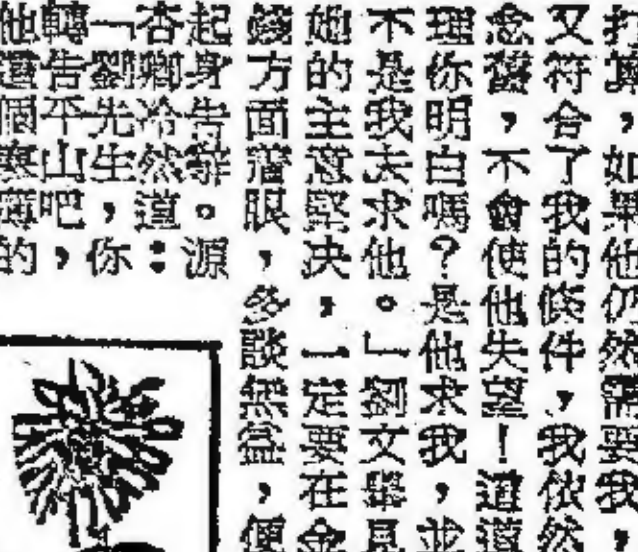 打算，如果他仍然需要我，
又符合了我的條件，我依然
念舊，不會使他失望！這道
理你明白嗎？是他求我，並
不是我去求他。」劉文舉見
她的主意堅决，一定要在金
錢方面着眼，多談無益，便
起身告辭。源
杏卿冷然道：
「劉先生，你
轉告平山吧，
他這個寒薄的